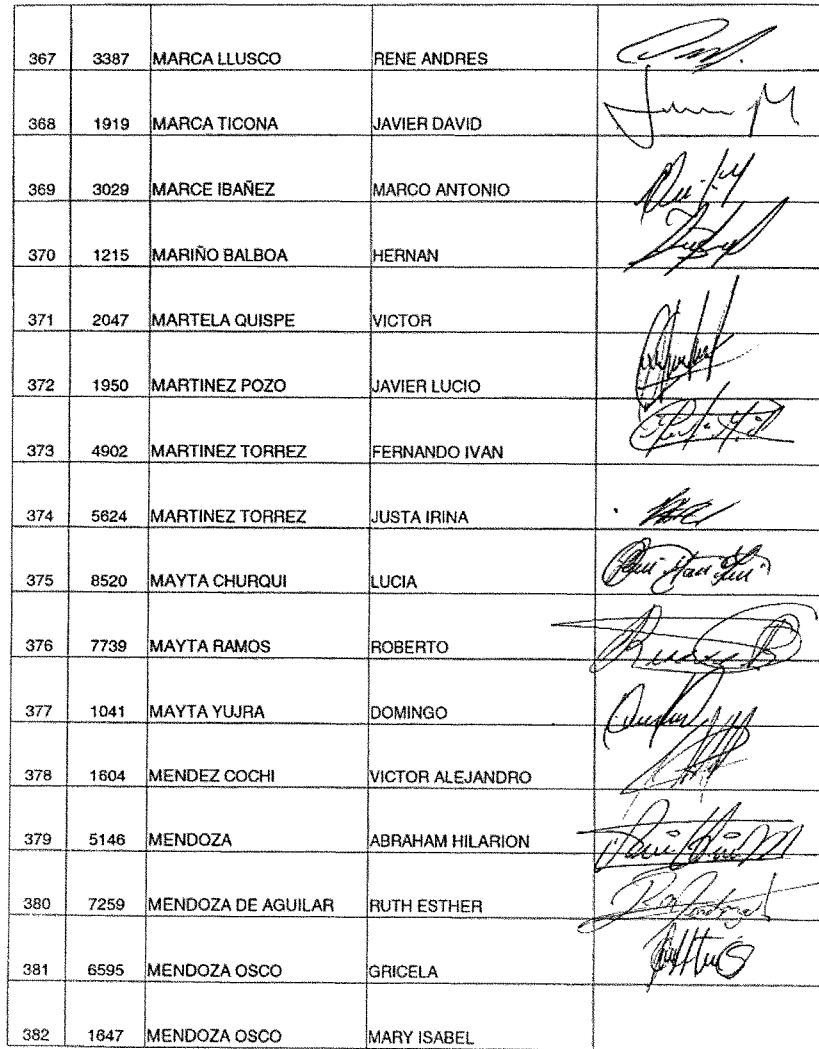 367 3387 MARCA LLUSCO RENE ANDRES
368 1919 MARCA TICONA JAVIER DAVID
369 3029 MARCE IBAÑEZ MARCO ANTONIO
370 1215 MARIÑO BALBOA HERNAN
371 2047 MARTELA QUISPE VICTOR
372 1950 MARTINEZ POZO JAVIER LUCIO
373 4902 MARTINEZ TORREZ FERNANDO IVAN
374 5624 MARTINEZ TORREZ JUSTA IRINA
375 8520 MAYTA CHURQUI LUCIA
376 7739 MAYTA RAMOS ROBERTO
377 1041 MAYTA YUJRA DOMINGO
378 1604 MENDEZ COCHI VICTOR ALEJANDRO
379 5146 MENDOZA ABRAHAM HILARION
380 7259 MENDOZA DE AGUILAR RUTH ESTHER
381 6595 MENDOZA OSCO GRICELA
382 1647 MENDOZA OSCO MARY ISABEL